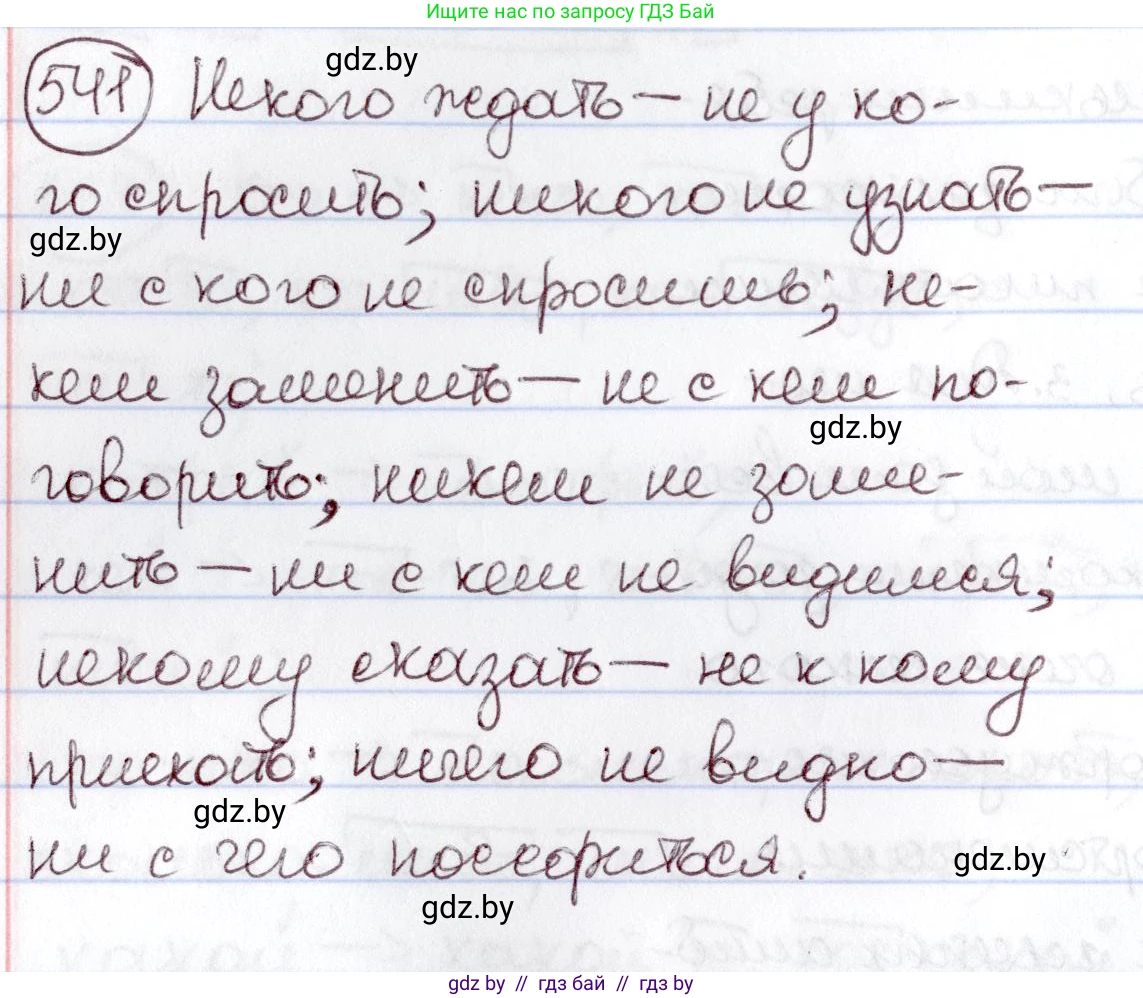 Ищите нас по запросу ГДЗ Бай
gdz.by
541 Некого ждать — не у ко-
го спросить; никого не узнать —
gdz.by
ни с кого не спросишь; не-
кем заменить — не с кем по-
gdz.by
говорить; никем не заме-
нить — ни с кем не видимся;
некому сказать — не к кому
приехать; ничего не видно —
gdz.by
ни с чего поссориться.
gdz.by
gdz.by
gdz.by // гдз бай // гдз by